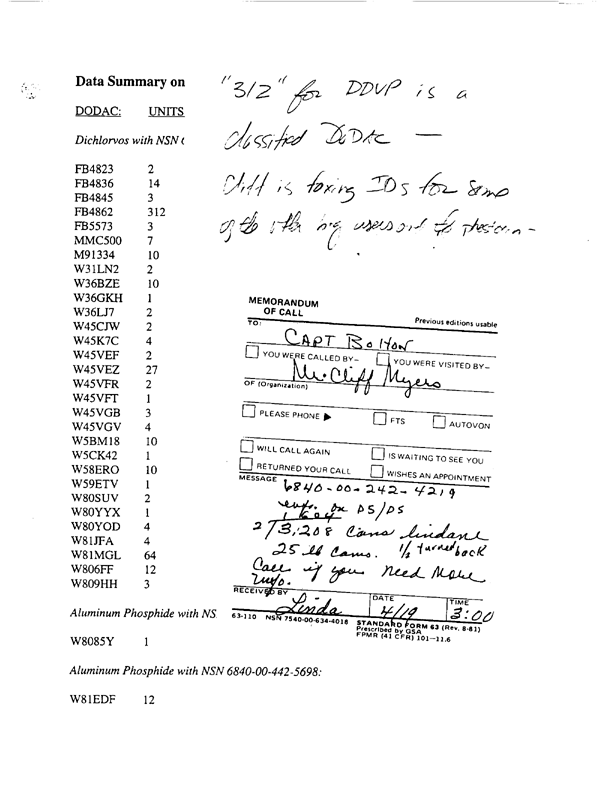 Data Summary on
DODAC: UNITS
Dichlorvos with NSN (
FB4823 2
FB4836 14
FB4845 3
FB4862 312
FB5573 3
MMC500 7
M91334 10
W31LN2 2
W36BZE 10
W36GKH 1
W36LJ7 2
W45CJW 2
W45K7C 4
W45VEF 2
W45VEZ 27
W45VFR 2
W45VFT 1
W45VGB 3
W45VGV 4
W5BM18 10
W5CK42 1
W58ERO 10
W59ETV 1
W80SUV 2
W80YYX 1
W80YOD 4
W81JFA 4
W81MGL 64
W806FF 12
W809HH 3
Aluminum Phosphide with NS
W8085Y 1
Aluminum Phosphide with NSN 6840-00-442-5698:
W81EDF 12
"312" for DDVP is a
classified DoDAC —
Cliff is faxing IDs for some
of the other big users
MEMORANDUM
OF CALL
Previous editions usable
TO:
CAPT Bolton
YOU WERE CALLED BY–
YOU WERE VISITED BY–
Mr. Cliff Myers
OF (Organization)
PLEASE PHONE ▶
FTS
AUTOVON
WILL CALL AGAIN
IS WAITING TO SEE YOU
RETURNED YOUR CALL
WISHES AN APPOINTMENT
MESSAGE
6840-00-242-4219
info. on DS/DS
3,208 Cans lindane
25 lb Cans. 1/2 turned back
Call if you need More
info.
RECEIVED BY
Linda
DATE
4/19
TIME
3:00
63-110 NSN 7540-00-634-4018
STANDARD FORM 63 (Rev. 8-81)
Prescribed by GSA
FPMR (41 CFR) 101–11.6